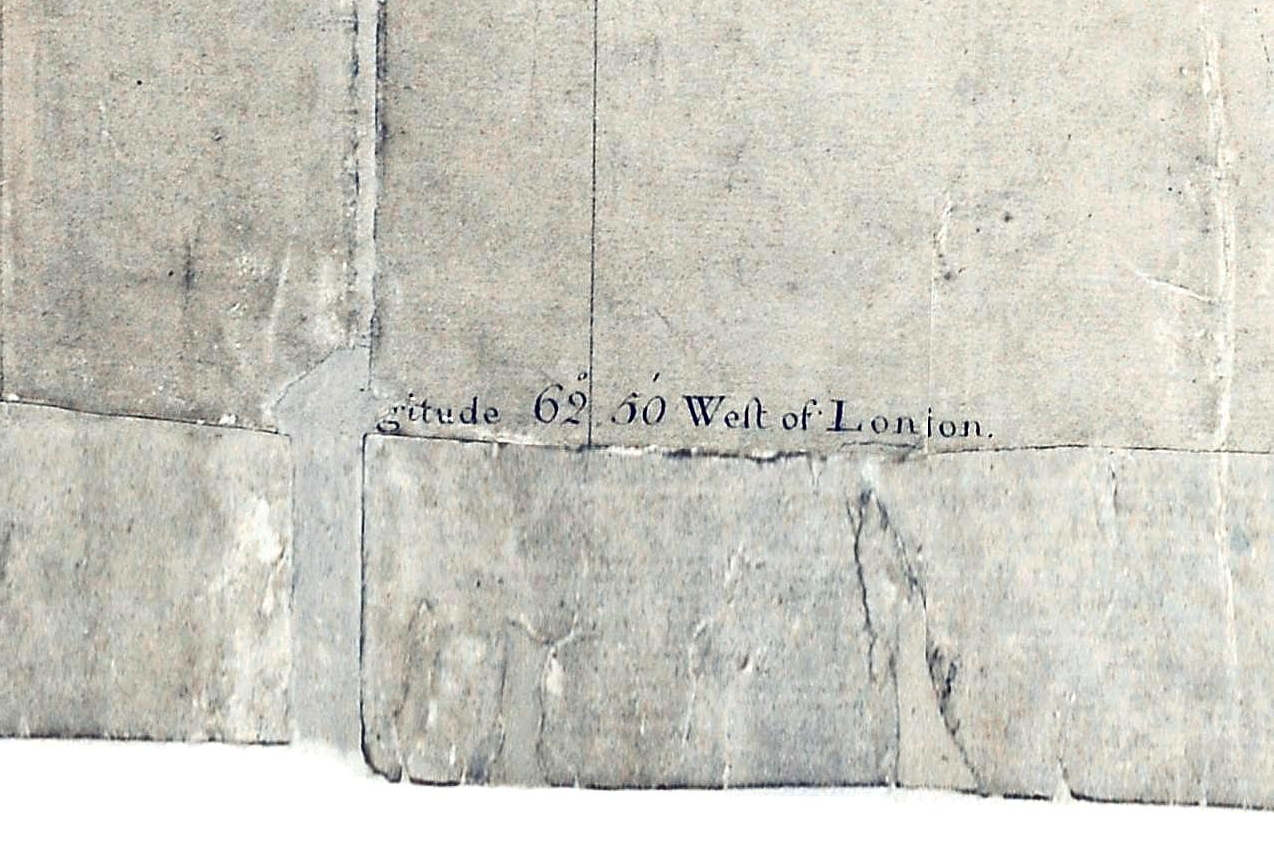 gitude 62° 50′ Weſt of London.